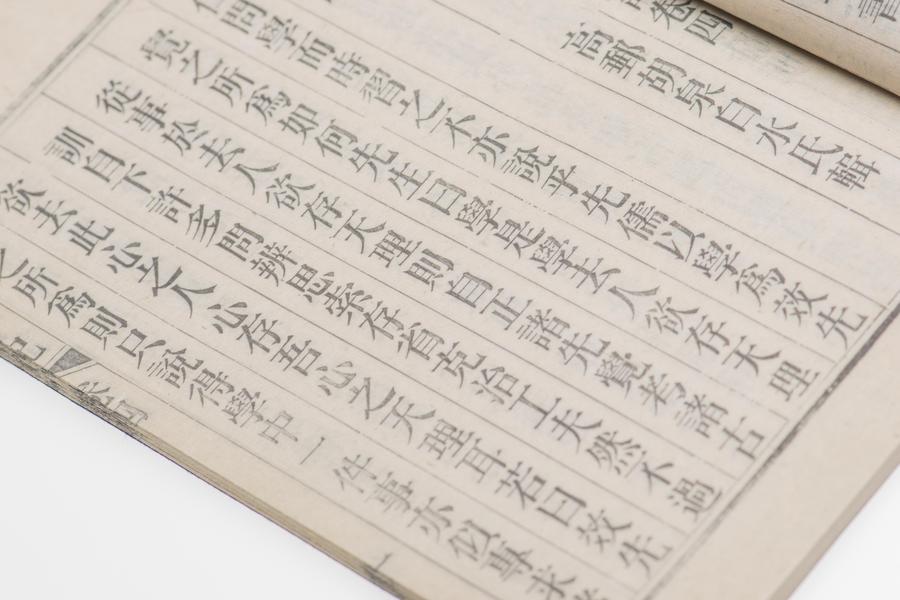 卷四
高郵胡泉白水氏輯
問學而時習之不亦說乎先儒以學為效先
覺之所為如何先生曰學是學去人欲存天理
從事於去人欲存天理則自正諸先覺考諸古
訓自下許多問辨思索存省克治工夫然不過
欲去此心之人心存吾心之天理耳若曰效先
之所為則只說得學中一件事亦似專求